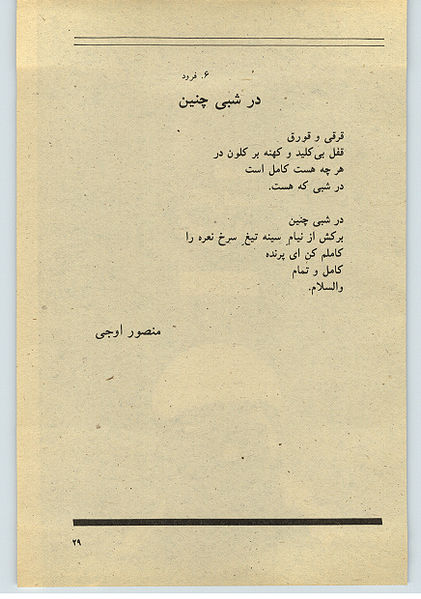 ۶. فرود
در شبی چنین
قرقی و قورق
قفل بی‌کلید و کهنه بر کلون در
هر چه هست کامل است
در شبی که هست.
در شبی چنین
برکش از نیامِ سینه تیغِ سرخ نعره را
کاملم کن ای پرنده
کامل و تمام
والسلام.
منصور اوجی
۲۹